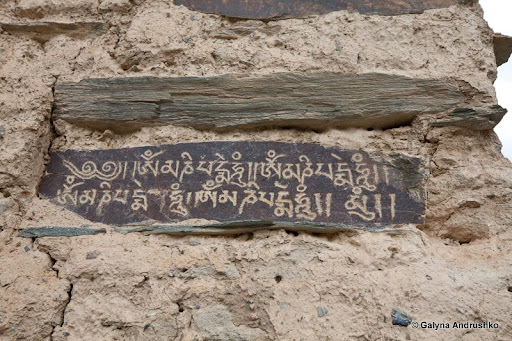 ༄།། ཨོཾ་མ་ཎི་པདྨེ་ཧཱུྃ།།ཨོཾ་མ་ཎི་པདྨེ་ཧཱུྃ།།
ཨོཾ་མ་ཎི་པདྨེ་ཧཱུྃ།།ཨོཾ་མ་ཎི་པདྨེ་ཧཱུྃ།།
© Galyna Andrushko